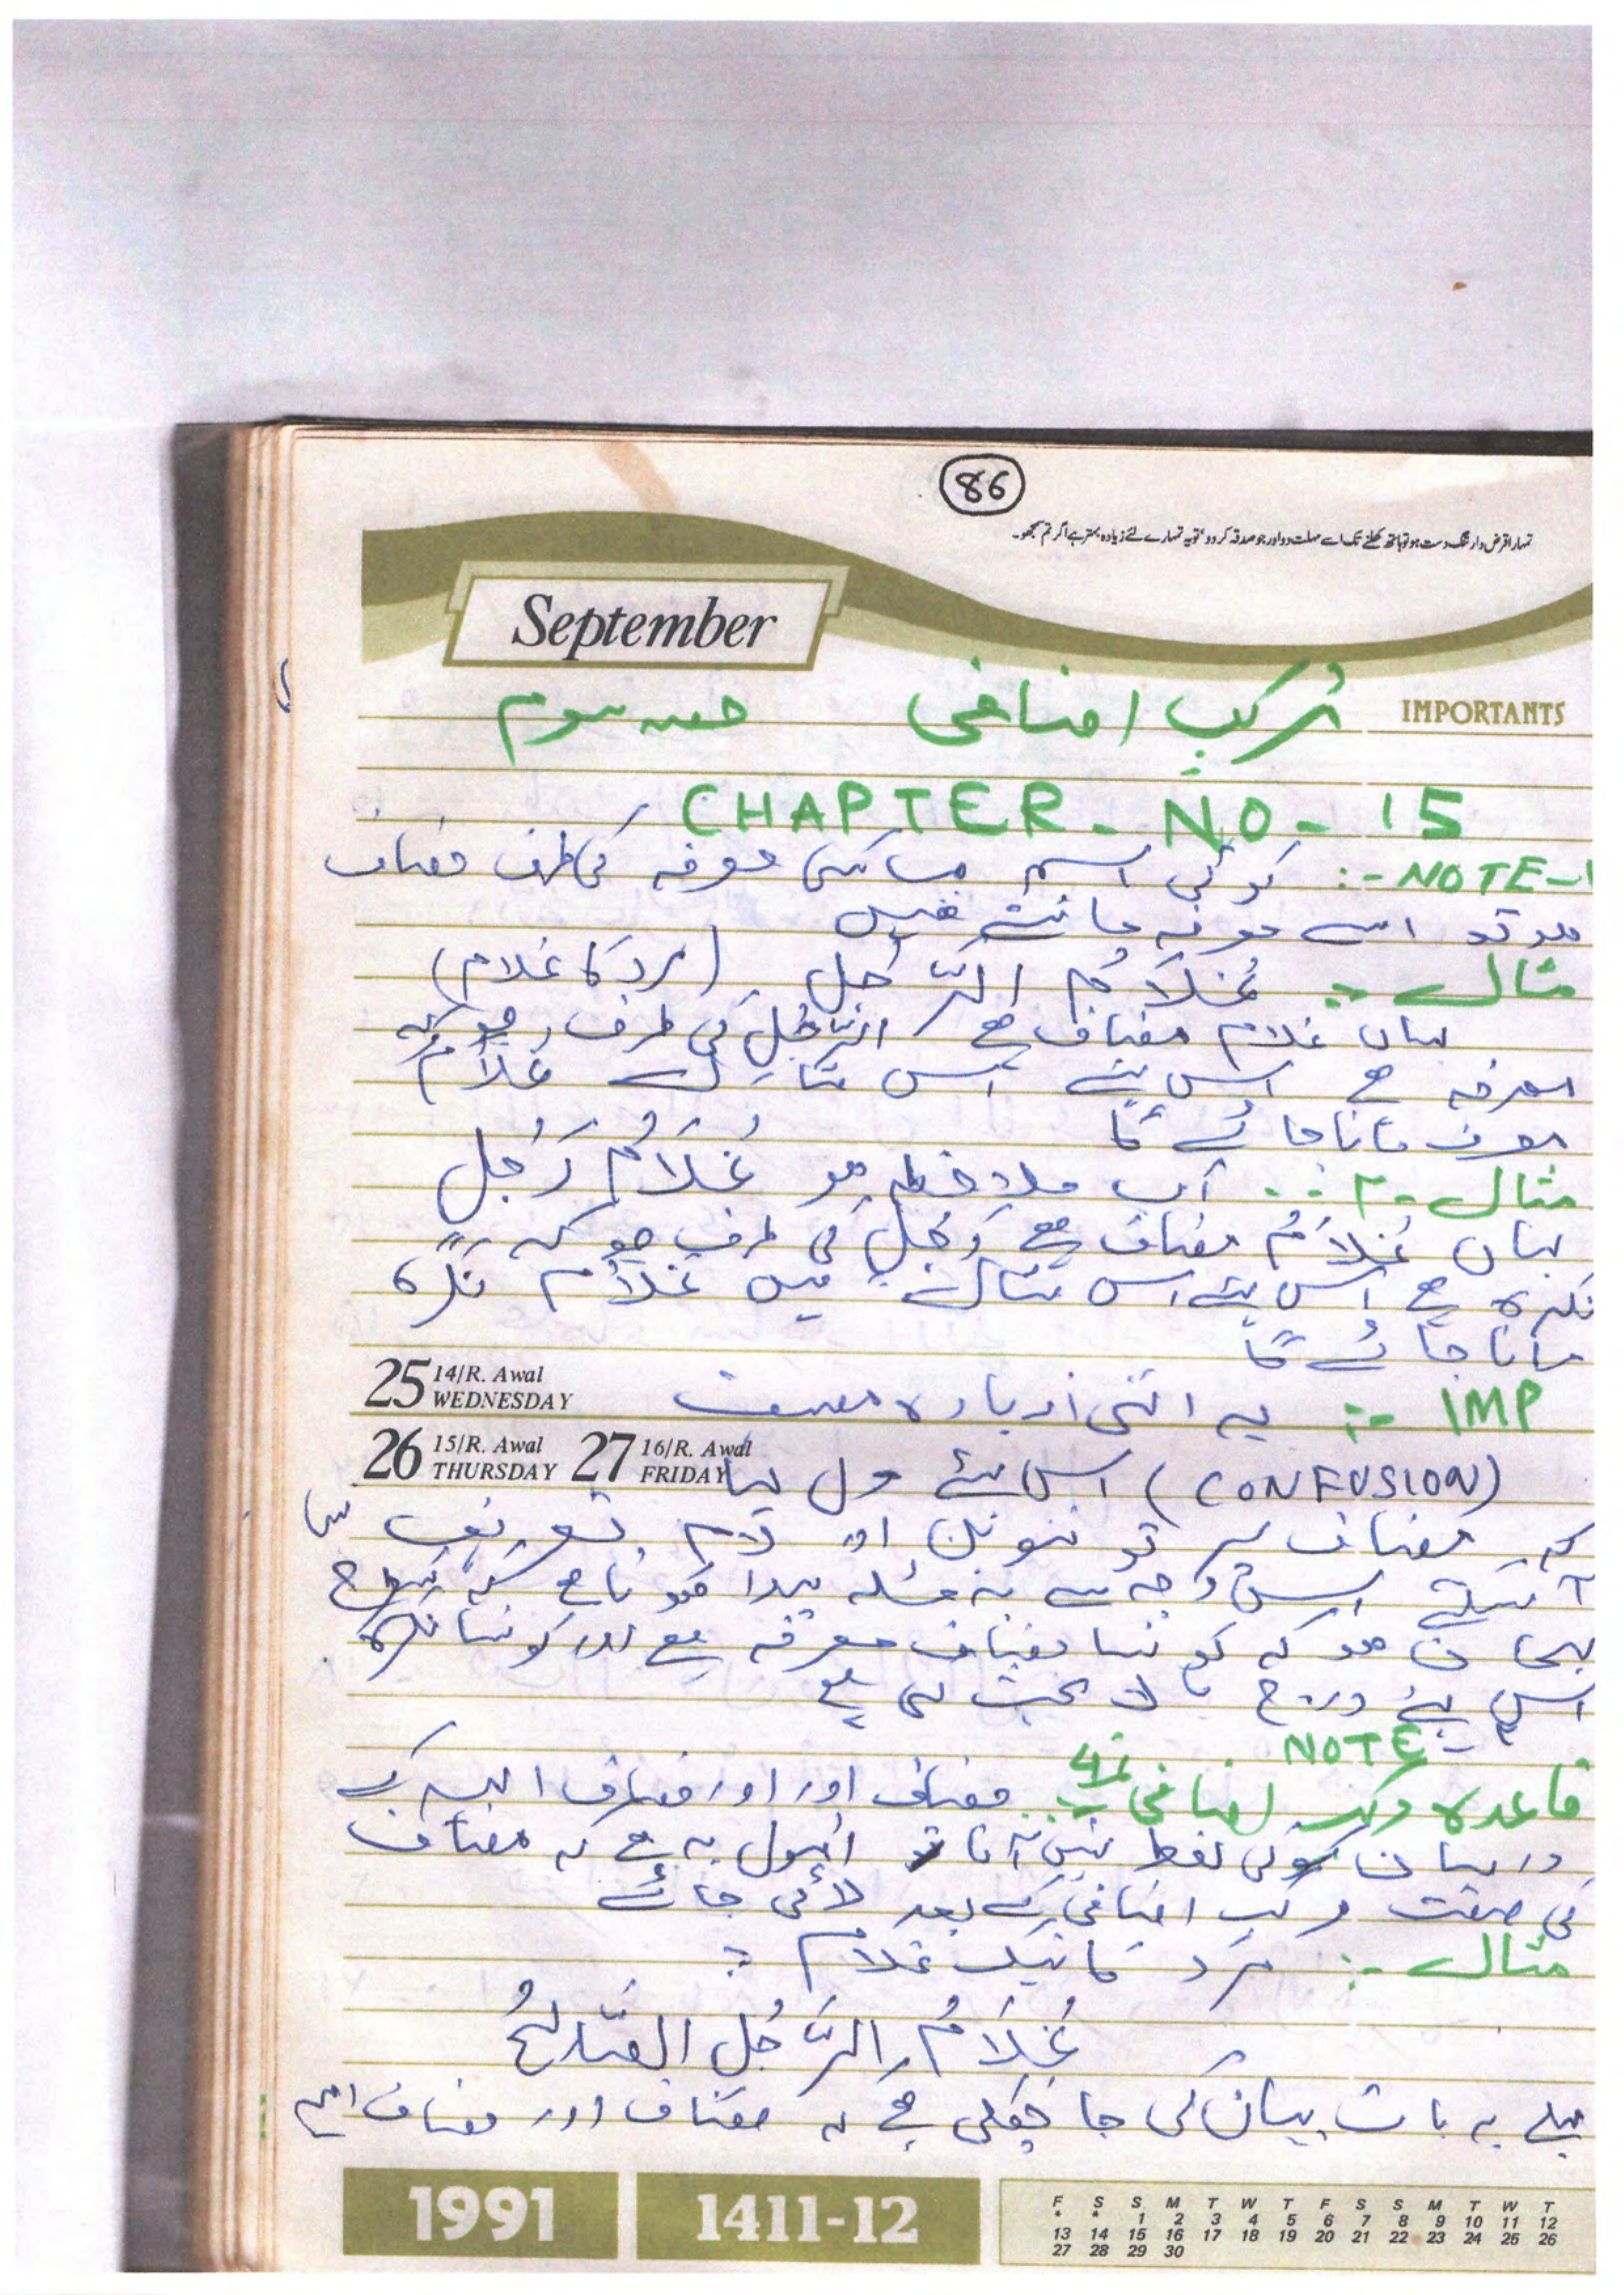 86
تمہارا قرض دار تنگ دست ہو تو ہاتھ کھلنے تک اسے مہلت دو اور جو صدقہ کر دو، تو یہ تمہارے لئے زیادہ بہتر ہے اگر تم سمجھو۔
September
IMPORTANTS
مرکب اضافی حصہ سوم
CHAPTER - NO - 15
NOTE-1 :- کوئی اسم جب کسی معرفہ کی طرف مضاف
ہو تو اسے معرفہ مانتے ہیں
مثال :- غُلَامُ الرَّجُلِ (مرد کا غلام)
یہاں غلام مضاف ہے الرَّجُلِ کی طرف جو کہ
معرفہ ہے اس لئے اس مثال غلام
معرفہ مانا جائے گا
مثال -۲ :- اب ملاحظہ ہو غُلَامُ رَجُلٍ
یہاں غُلَامُ مضاف ہے رَجُلٍ کی طرف جو کہ
نکرہ ہے اس لئے اس مثال میں غلام نکرہ
مانا جائے گا
25 14/R. Awal WEDNESDAY
IMP :- یہ اتنی زیادہ مصیبت
26 15/R. Awal THURSDAY 27 16/R. Awal FRIDAY
(CONFUSION) اس لئے مول لیا
کہ مضاف پر تو تنوین اور لام تعریف نہیں
آ سکتے اس وجہ سے یہ مسئلہ پیدا ہوتا ہے کہ کس طرح
پہچان ہو کہ کونسا مضاف معرفہ ہے اور کونسا نکرہ
اس لئے درج بالا بحث کی ہے
NOTE
قاعدہ مرکب اضافی :- مضاف اور اور مضاف الیہ کے
درمیان کوئی لفظ نہیں آتا تو اصول یہ ہے کہ مضاف
کی صفت مرکب اضافی کے بعد لائی جائے
مثال :- مرد کا نیک غلام :
غُلَامُ الرَّجُلِ الصَّالِحُ
پہلے یہ بات بیان کی جا چکی ہے کہ مضاف اور مضاف الیہ
1991
1411-12
F S S M T W T F S S M T W T
* * 1 2 3 4 5 6 7 8 9 10 11 12
13 14 15 16 17 18 19 20 21 22 23 24 25 26
27 28 29 30